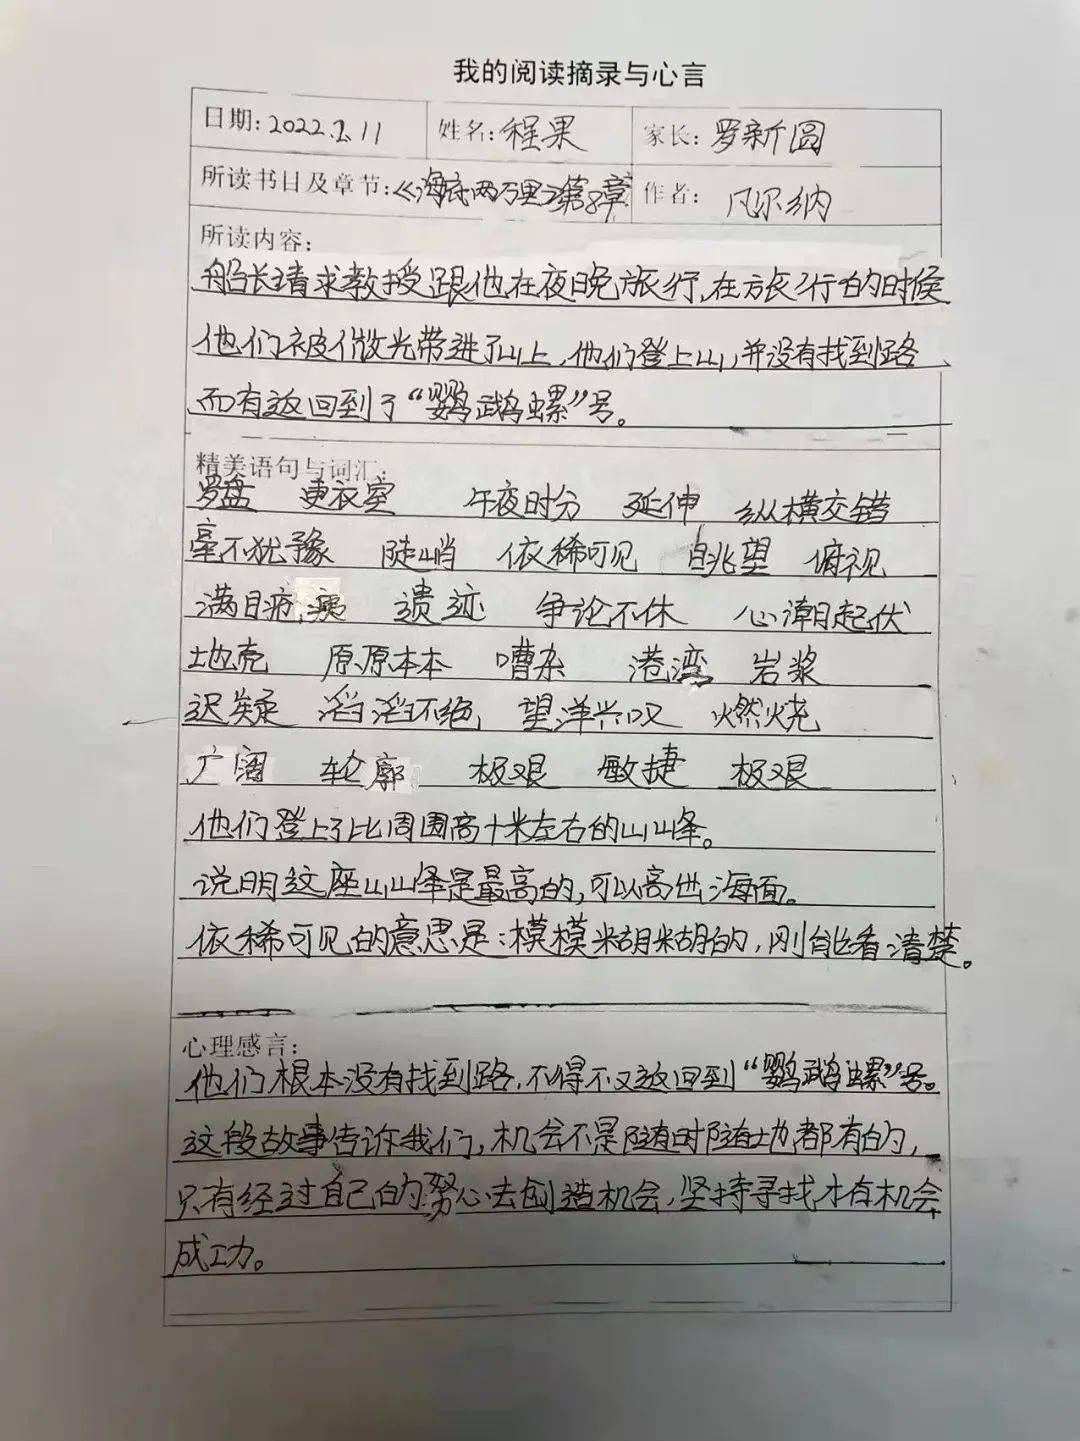 我的阅读摘录与心言
日期:2022.2.11 姓名:程果 家长:罗新圆
所读书目及章节:《海底两万里》第8章 作者:凡尔纳
所读内容:
船长请求教授跟他在夜晚旅行,在旅行的时候
他们被微光带进了山上,他们登上山,并没有找到路
而有返回到了“鹦鹉螺”号。
精美语句与词汇:
罗盘 更衣室 午夜时分 延伸 纵横交错
毫不犹豫 陡峭 依稀可见 眺望 俯视
满目疮痍 遗迹 争论不休 心潮起伏
地壳 原原本本 嘈杂 港湾 岩浆
迟疑 滔滔不绝 望洋兴叹 燃烧
广阔 轮廓 极艰 敏捷 极艰
他们登上了比周围高十米左右的山峰。
说明这座山峰是最高的,可以高出海面。
依稀可见的意思是:模模糊糊的,刚能看清楚。
心理感言:
他们根本没有找到路,不得不又返回到“鹦鹉螺”号。
这段故事告诉我们,机会不是随时随地都有的,
只有经过自己的努心去创造机会,坚持寻找才有机会
成功。